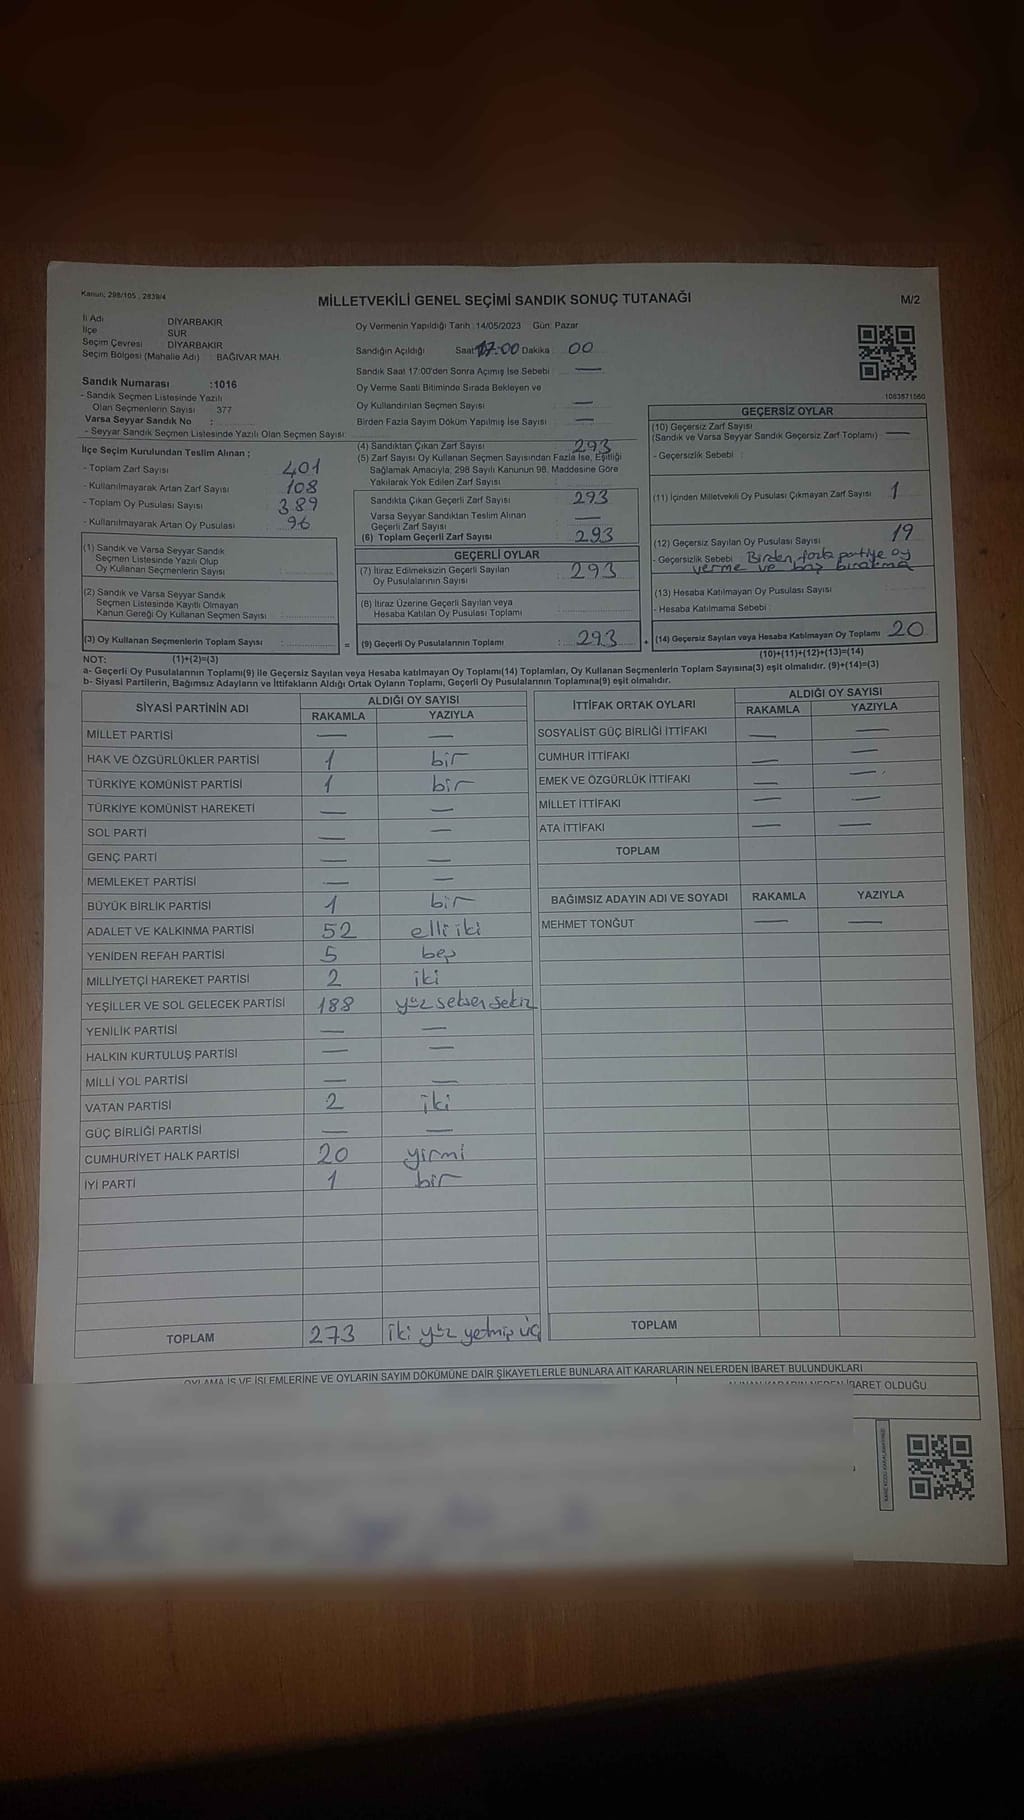 Kanun; 298/105 , 2839/4
MİLLETVEKİLİ GENEL SEÇİMİ SANDIK SONUÇ TUTANAĞI
M/2
İl Adı DİYARBAKIR
İlçe SUR
Seçim Çevresi DİYARBAKIR
Seçim Bölgesi (Mahalle Adı) : BAĞIVAR MAH.
Sandık Numarası :1016
- Sandık Seçmen Listesinde Yazılı
Olan Seçmenlerin Sayısı 377
Varsa Seyyar Sandık No :
- Seyyar Sandık Seçmen Listesinde Yazılı Olan Seçmen Sayısı:
İlçe Seçim Kurulundan Teslim Alınan ;
- Toplam Zarf Sayısı : 401
- Kullanılmayarak Artan Zarf Sayısı : 108
- Toplam Oy Pusulası Sayısı : 389
- Kullanılmayarak Artan Oy Pusulası : 96
(1) Sandık ve Varsa Seyyar Sandık
Seçmen Listesinde Yazılı Olup
Oy Kullanan Seçmenlerin Sayısı :
(2) Sandık ve Varsa Seyyar Sandık
Seçmen Listesinde Kayıtlı Olmayan
Kanun Gereği Oy Kullanan Seçmen Sayısı :
(3) Oy Kullanan Seçmenlerin Toplam Sayısı : =
(1)+(2)=(3)
Oy Vermenin Yapıldığı Tarih: 14/05/2023 Gün: Pazar
Sandığın Açıldığı Saat 17:00 Dakika : 00
Sandık Saat 17:00'den Sonra Açımış İse Sebebi : —
Oy Verme Saati Bitiminde Sırada Bekleyen ve
Oy Kullandırılan Seçmen Sayısı : —
Birden Fazla Sayım Döküm Yapılmış İse Sayısı : —
(4) Sandıktan Çıkan Zarf Sayısı : 293
(5) Zarf Sayısı Oy Kullanan Seçmen Sayısından Fazla İse, Eşitliği
Sağlamak Amacıyla, 298 Sayılı Kanunun 98. Maddesine Göre
Yakılarak Yok Edilen Zarf Sayısı :
Sandıkta Çıkan Geçerli Zarf Sayısı : 293
Varsa Seyyar Sandıktan Teslim Alınan
Geçerli Zarf Sayısı : —
(6) Toplam Geçerli Zarf Sayısı : 293
GEÇERLİ OYLAR
(7) İtiraz Edilmeksizin Geçerli Sayılan
Oy Pusulalarının Sayısı : 293
(8) İtiraz Üzerine Geçerli Sayılan veya
Hesaba Katılan Oy Pusulası Toplamı :
(9) Geçerli Oy Pusulalarının Toplamı : 293 +
1063571560
GEÇERSİZ OYLAR
(10) Geçersiz Zarf Sayısı
(Sandık ve Varsa Seyyar Sandık Geçersiz Zarf Toplamı) : —
- Geçersizlik Sebebi :
(11) İçinden Milletvekili Oy Pusulası Çıkmayan Zarf Sayısı : 1
(12) Geçersiz Sayılan Oy Pusulası Sayısı : 19
- Geçersizlik Sebebi : Birden fazla partiye oy
verme ve boş bırakma
(13) Hesaba Katılmayan Oy Pusulası Sayısı :
- Hesaba Katılmama Sebebi :
(14) Geçersiz Sayılan veya Hesaba Katılmayan Oy Toplamı : 20
(10)+(11)+(12)+(13)=(14)
NOT:
a- Geçerli Oy Pusulalarının Toplamı(9) ile Geçersiz Sayılan veya Hesaba katılmayan Oy Toplamı(14) Toplamları, Oy Kullanan Seçmenlerin Toplam Sayısına(3) eşit olmalıdır. (9)+(14)=(3)
b- Siyasi Partilerin, Bağımsız Adayların ve İttifakların Aldığı Ortak Oyların Toplamı, Geçerli Oy Pusulalarının Toplamına(9) eşit olmalıdır.
SİYASİ PARTİNİN ADI ALDIĞI OY SAYISI
RAKAMLA YAZIYLA
MİLLET PARTİSİ — —
HAK VE ÖZGÜRLÜKLER PARTİSİ 1 bir
TÜRKİYE KOMÜNİST PARTİSİ 1 bir
TÜRKİYE KOMÜNİST HAREKETİ — —
SOL PARTİ — —
GENÇ PARTİ — —
MEMLEKET PARTİSİ — —
BÜYÜK BİRLİK PARTİSİ 1 bir
ADALET VE KALKINMA PARTİSİ 52 elli iki
YENİDEN REFAH PARTİSİ 5 beş
MİLLİYETÇİ HAREKET PARTİSİ 2 iki
YEŞİLLER VE SOL GELECEK PARTİSİ 188 yüz seksen sekiz
YENİLİK PARTİSİ — —
HALKIN KURTULUŞ PARTİSİ — —
MİLLİ YOL PARTİSİ — —
VATAN PARTİSİ 2 iki
GÜÇ BİRLİĞİ PARTİSİ — —
CUMHURİYET HALK PARTİSİ 20 yirmi
İYİ PARTİ 1 bir
TOPLAM 273 iki yüz yetmiş üç
İTTİFAK ORTAK OYLARI ALDIĞI OY SAYISI
RAKAMLA YAZIYLA
SOSYALİST GÜÇ BİRLİĞİ İTTİFAKI — —
CUMHUR İTTİFAKI — —
EMEK VE ÖZGÜRLÜK İTTİFAKI — —
MİLLET İTTİFAKI — —
ATA İTTİFAKI — —
TOPLAM
BAĞIMSIZ ADAYIN ADI VE SOYADI RAKAMLA YAZIYLA
MEHMET TONĞUT — —
TOPLAM
OYLAMA İŞ VE İŞLEMLERİNE VE OYLARIN SAYIM DÖKÜMÜNE DAİR ŞİKAYETLERLE BUNLARA AİT KARARLARIN NELERDEN İBARET BULUNDUKLARI
ALINAN KARARIN NEDEN İBARET OLDUĞU